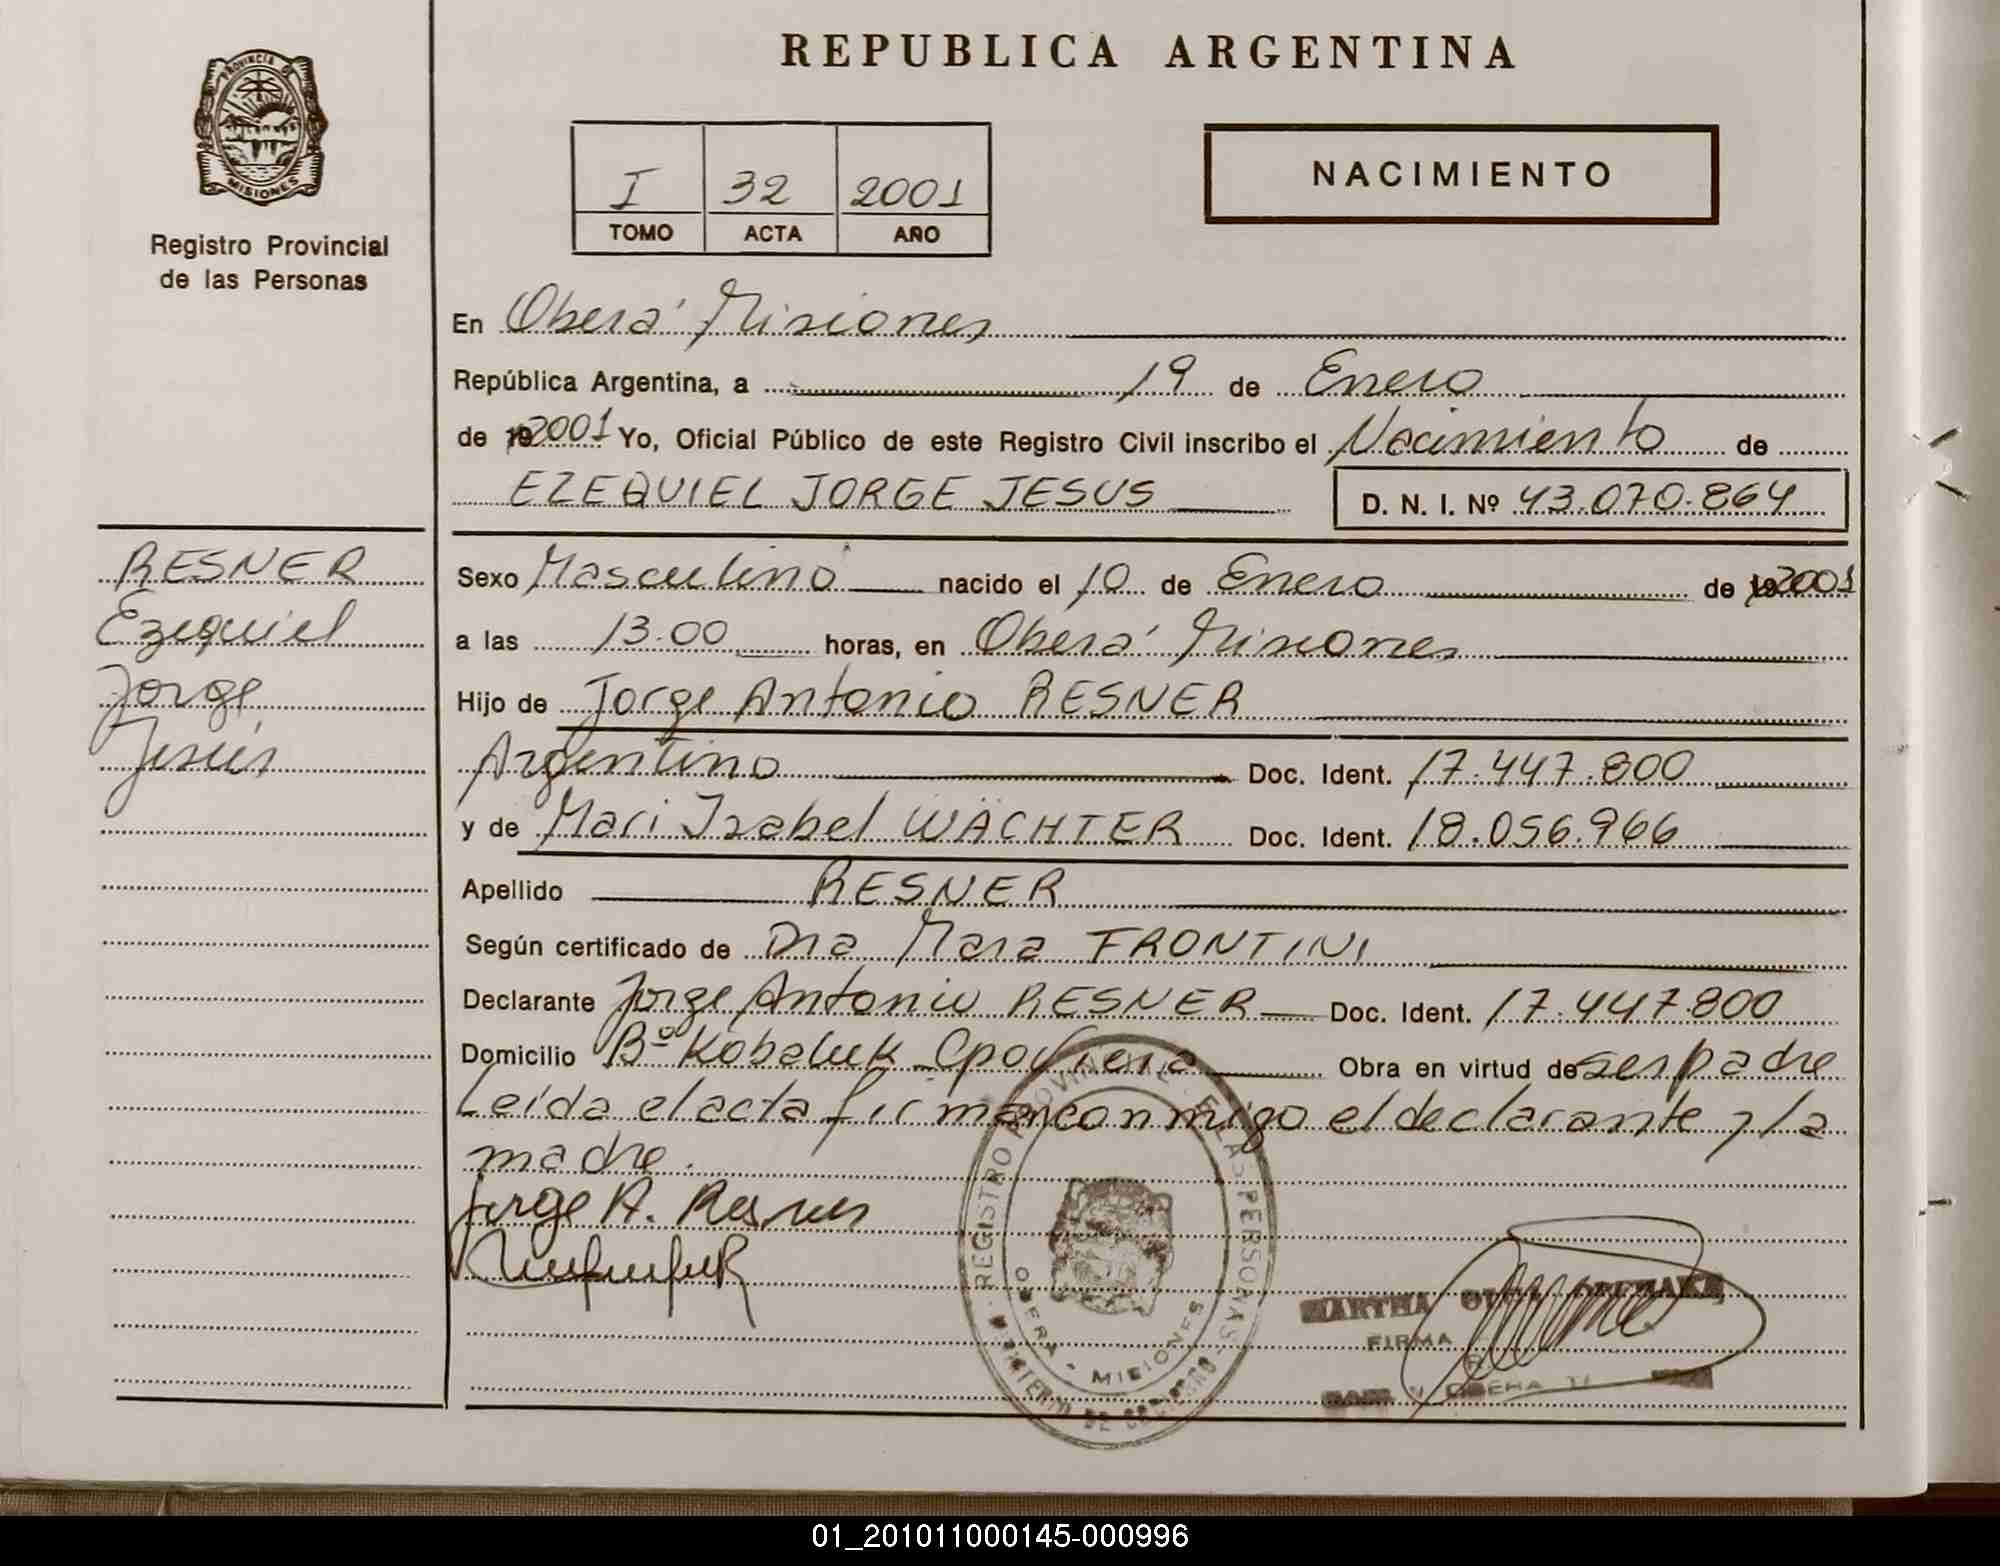 REPUBLICA ARGENTINA
PROVINCIA DE
MISIONES
Registro Provincial
de las Personas
I 32 2001
TOMO ACTA AÑO
NACIMIENTO
En Oberá Misiones
República Argentina, a 19 de Enero
de 19 2001 Yo, Oficial Público de este Registro Civil inscribo el Nacimiento de
EZEQUIEL JORGE JESUS D. N. I. Nº 43.070.864
RESNER
Ezequiel
Jorge
Jesús
Sexo Masculino nacido el 10 de Enero de 19 2001
a las 13.00 horas, en Oberá Misiones
Hijo de Jorge Antonio RESNER
Argentino Doc. Ident. 17.447.800
y de Mari Izabel WÄCHTER Doc. Ident. 18.056.966
Apellido RESNER
Según certificado de Dra Mara FRONTINI
Declarante Jorge Antonio RESNER Doc. Ident. 17.447.800
Domicilio Bº Kobaluk Obra en virtud de ser padre
Leída el acta firman conmigo el declarante y la
madre.
Jorge A. Resner
REGISTRO PROVINCIAL DE LAS PERSONAS
OBERA - MISIONES
MINISTERIO DE GOBIERNO
MARTHA
FIRMA
01_201011000145-000996